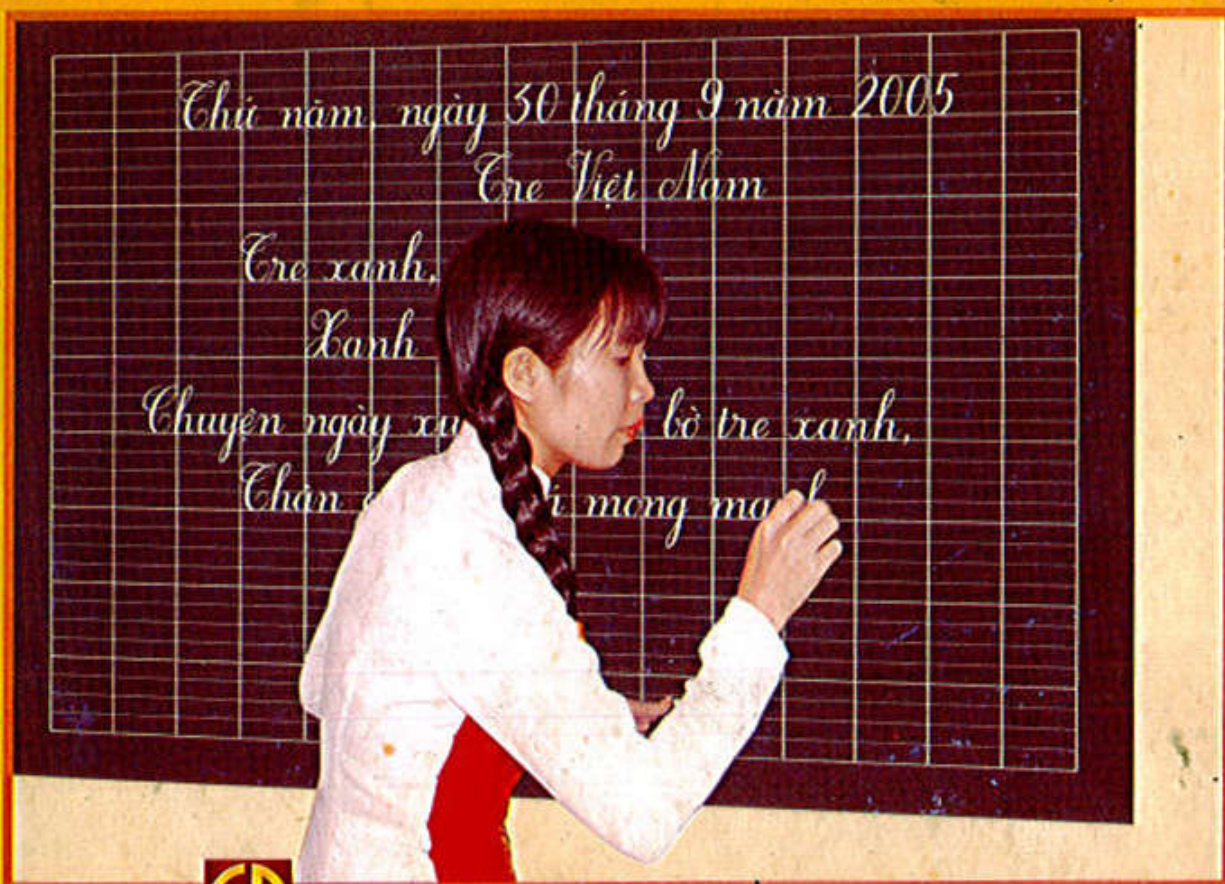 Thứ năm, ngày 30 tháng 9 năm 2005
Tre Việt Nam
Tre xanh,
Xanh
Chuyện ngày bờ tre xanh,
Thân mong